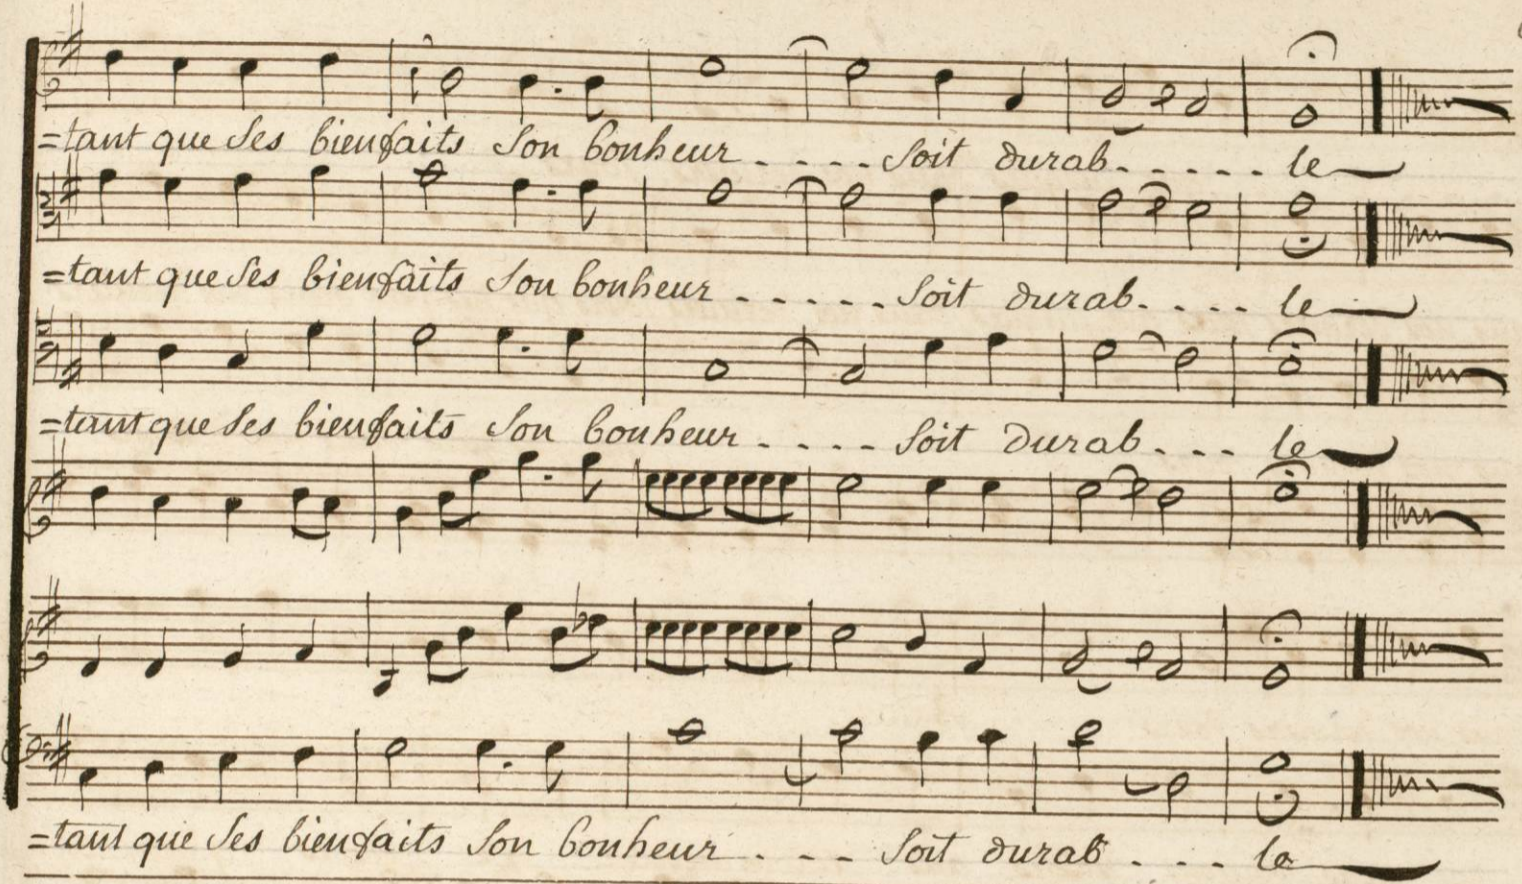 =tant que ses bienfaits son bonheur . . . . . soit durab. . . . . . le
=tant que ses bienfaits son bonheur . . . . . . soit durab. . . . . le
=tant que ses bienfaits son bonheur . . . . . soit durab . . . . le
=tant que ses bienfaits son bonheur . . . . soit durab . . . . le